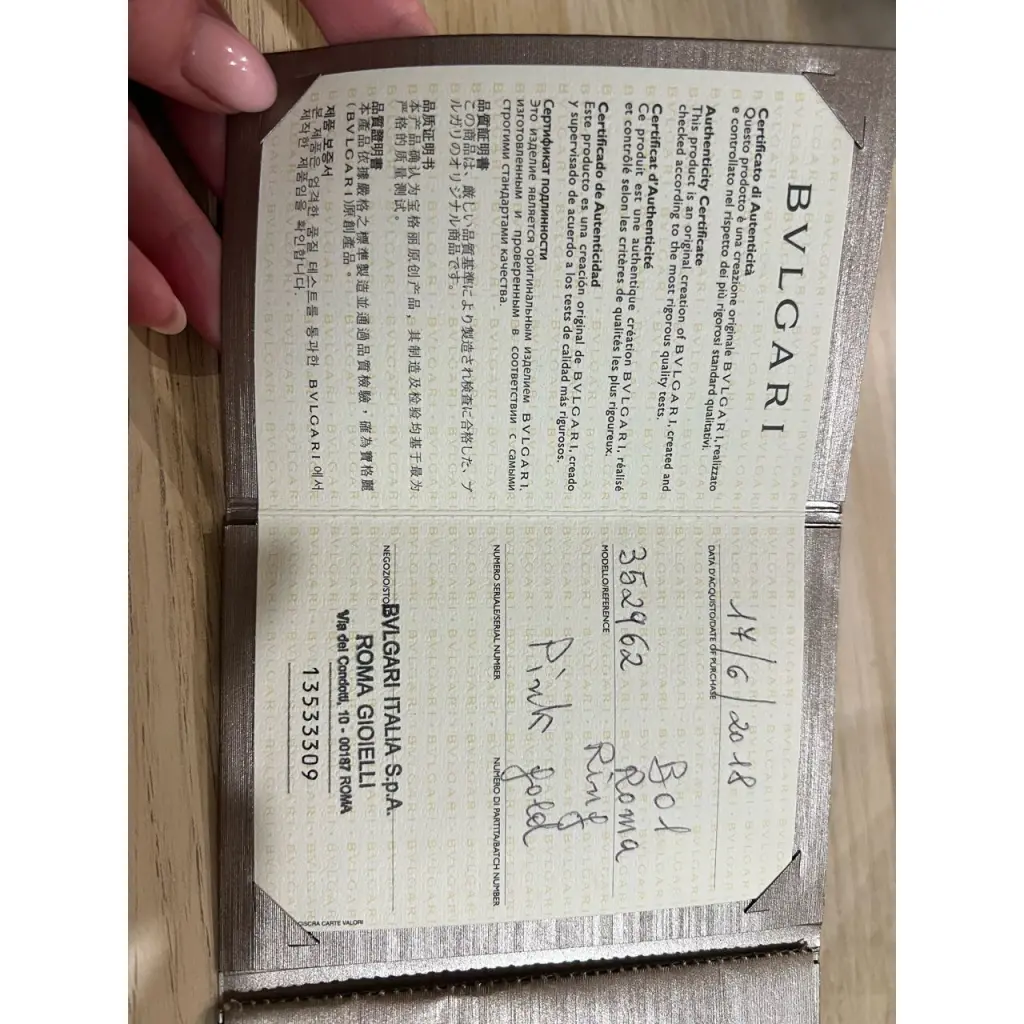 BVLGARI
Certificato di Autenticità
Questo prodotto è una creazione originale BVLGARI, realizzato
e controllato nel rispetto dei più rigorosi standard qualitativi.
Authenticity Certificate
This product is an original creation of BVLGARI, created and
checked according to the most rigorous quality tests.
Certificat d'Authenticité
Ce produit est une authentique création BVLGARI, réalisé
et contrôlé selon les critères de qualités les plus rigoureux.
Certificado de Autenticidad
Este producto es una creación original de BVLGARI, creado
y supervisado de acuerdo a los tests de calidad más rigurosos.
Сертификат подлинности
Это изделие является оригинальным изделием BVLGARI,
изготовленным и проверенным в соответствии с самыми
строгими стандартами качества.
品質証明書
この商品は、厳しい品質基準により製造され検査に合格した、ブ
ルガリのオリジナル商品です。
品质证明书
本产品确认为宝格丽原创产品，其制造及检验均基于最为
严格的质量测试。
品質證明書
本產品依據嚴格之標準製造並通過品質檢驗，確為寶格麗
(BVLGARI)原創產品。
제품 보증서
본 제품은 엄격한 품질 테스트를 통과한 BVLGARI에서
제작한 제품임을 확인합니다.
17/6/2018
DATA D'ACQUISTO/DATE OF PURCHASE
352962 Roma
MODELLO/REFERENCE
Ring
Pink gold
NUMERO SERIALE/SERIAL NUMBER NUMERO DI PARTITA/BATCH NUMBER
BVLGARI ITALIA S.p.A.
ROMA GIOIELLI
Via dei Condotti, 10 - 00187 ROMA
13533309
CARTE VALORI